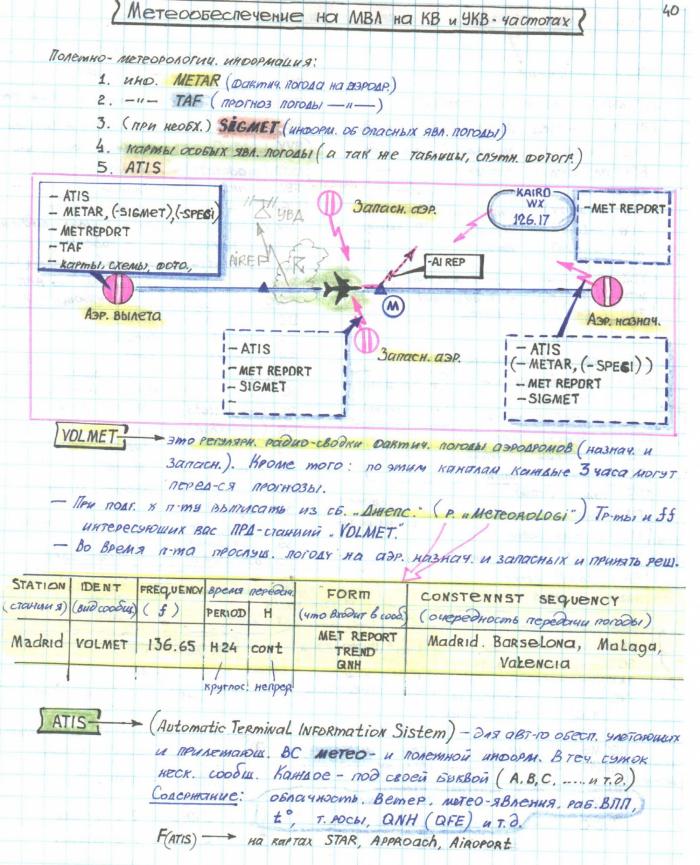 40
Метеообеспечение на МВЛ на КВ и УКВ-частотах
Полетно-метеорологич. информация:
1. инф. METAR (фактич. погода на аэродр.)
2. -"- TAF (прогноз погоды -"-)
3. (при необх.) SIGMET (информ. об опасных явл. погоды)
4. карты особых явл. погоды (а так же таблицы, спутн. фотогр.)
5. ATIS
- ATIS
- METAR, (-SIGMET), (-SPECI)
- METREPORT
- TAF
- карты, схемы, фото,
УВД
AIREP
Запасн. аэр.
KAIRO
WX
126.17
- MET REPORT
- AIREP
M
Аэр. вылета
Аэр. назнач.
Запасн. аэр.
- ATIS
- MET REPORT
- SIGMET
-
- ATIS
(- METAR, (-SPECI))
- MET REPORT
- SIGMET
VOLMET → это регулярн. радио-сводки фактич. погоды аэродромов (назнач. и
запасн.). Кроме того: по этим каналам каждые 3 часа могут
перед-ся прогнозы.
- При подг. к п-ту выписать из сб. "Джепс." (р. "METEOROLOGI") Тр-ты и ff
интересующих вас ПРД-станций "VOLMET."
- Во время п-та прослуш. погоду на аэр. назнач. и запасных и принять реш.
STATION IDENT FREQUENCY время передач. FORM CONSTENNST SEQUENCY
(станция) (вид сообщ.) (f) PERIOD H (что входит в сооб.) (очередность передачи погоды)
Madrid VOLMET 136.65 H24 cont MET REPORT Madrid. Barselona, Malaga,
TREND
QNH Valencia
круглос. непрер.
ATIS → (Automatic Terminal Information Sistem) - для авт-го обесп. улетающих
и прилетающ. ВС метео- и полетной информ. В теч. суток
неск. сообщ. Каждое - под своей буквой (A, B, C, ..... и т.д.)
Содержание: облачность. Ветер. метео-явления. раб. ВПП,
t°, т. росы, QNH (QFE) и т.д.
F(ATIS) → на картах STAR, Approach, Airoport